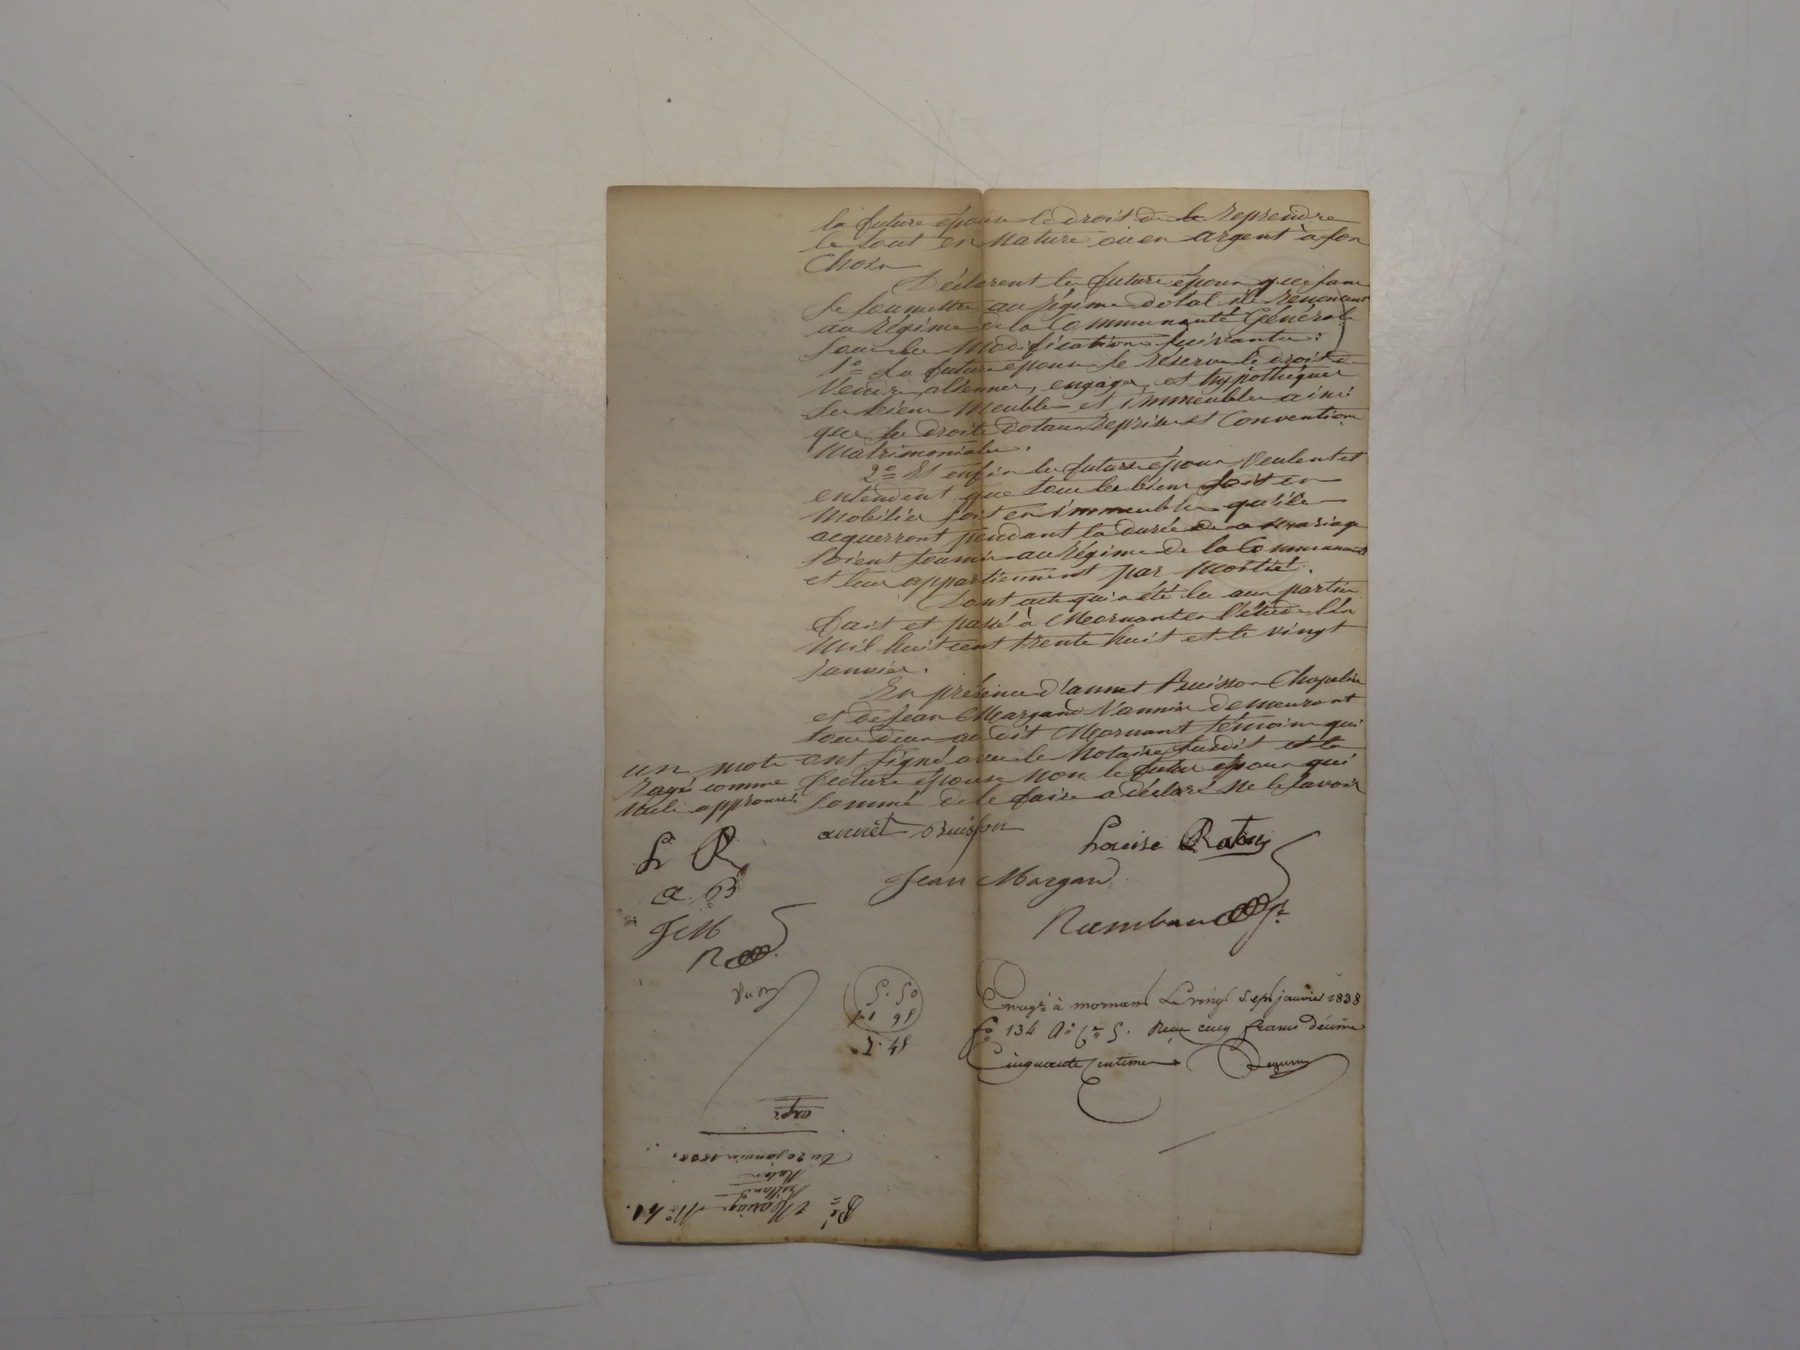 la future épouse le droit de le reprendre
le tout en Nature ou en argent à son
Choix
Déclarent les futurs époux que sans
se soumettre au régime dotal ils renoncent
au régime de la Communauté Générale
sous les Modifications suivantes:
1º La future épouse se réserve le droit de
Vendre, aliéner, engager, et hypothéquer
ses biens Meubles et immeubles ainsi
que ses droits dotaux reprises et Conventions
Matrimoniales.
2º Et enfin les futurs époux Veulent et
entendent que tous les biens soit en
Mobilier soit en immeubles qu'ils
acquerront pendant la durée de mariage
soient soumis au régime de la Communauté
et leur appartiennent par Moitié.
Dont acte qui a été lu aux parties
fait et passé à Mornant en l'étude l'an
Mil huit cent trente huit et le vingt
janvier.
En présence d'annet Buisson Chapelier
et de Jean Margand Vannier demeurant
tous deux audit Mornant témoins qui
ont signé avec le Notaire susdit et la
future épouse non le futur époux qui
sommé de le faire a déclaré ne le savoir
un mot
rayé comme
Nul approuvé
annet Buisson
Louise Raton
Jean Margand
L R
a B
J M
R
Enregé à mornant Le vingt sept janvier 1838
fo 134 Ro Ce 5. Reçu cinq francs décime
Cinquante Centimes
05.5
Mariage Nº 41.
Raton
Du 20 janvier 1838.
expé